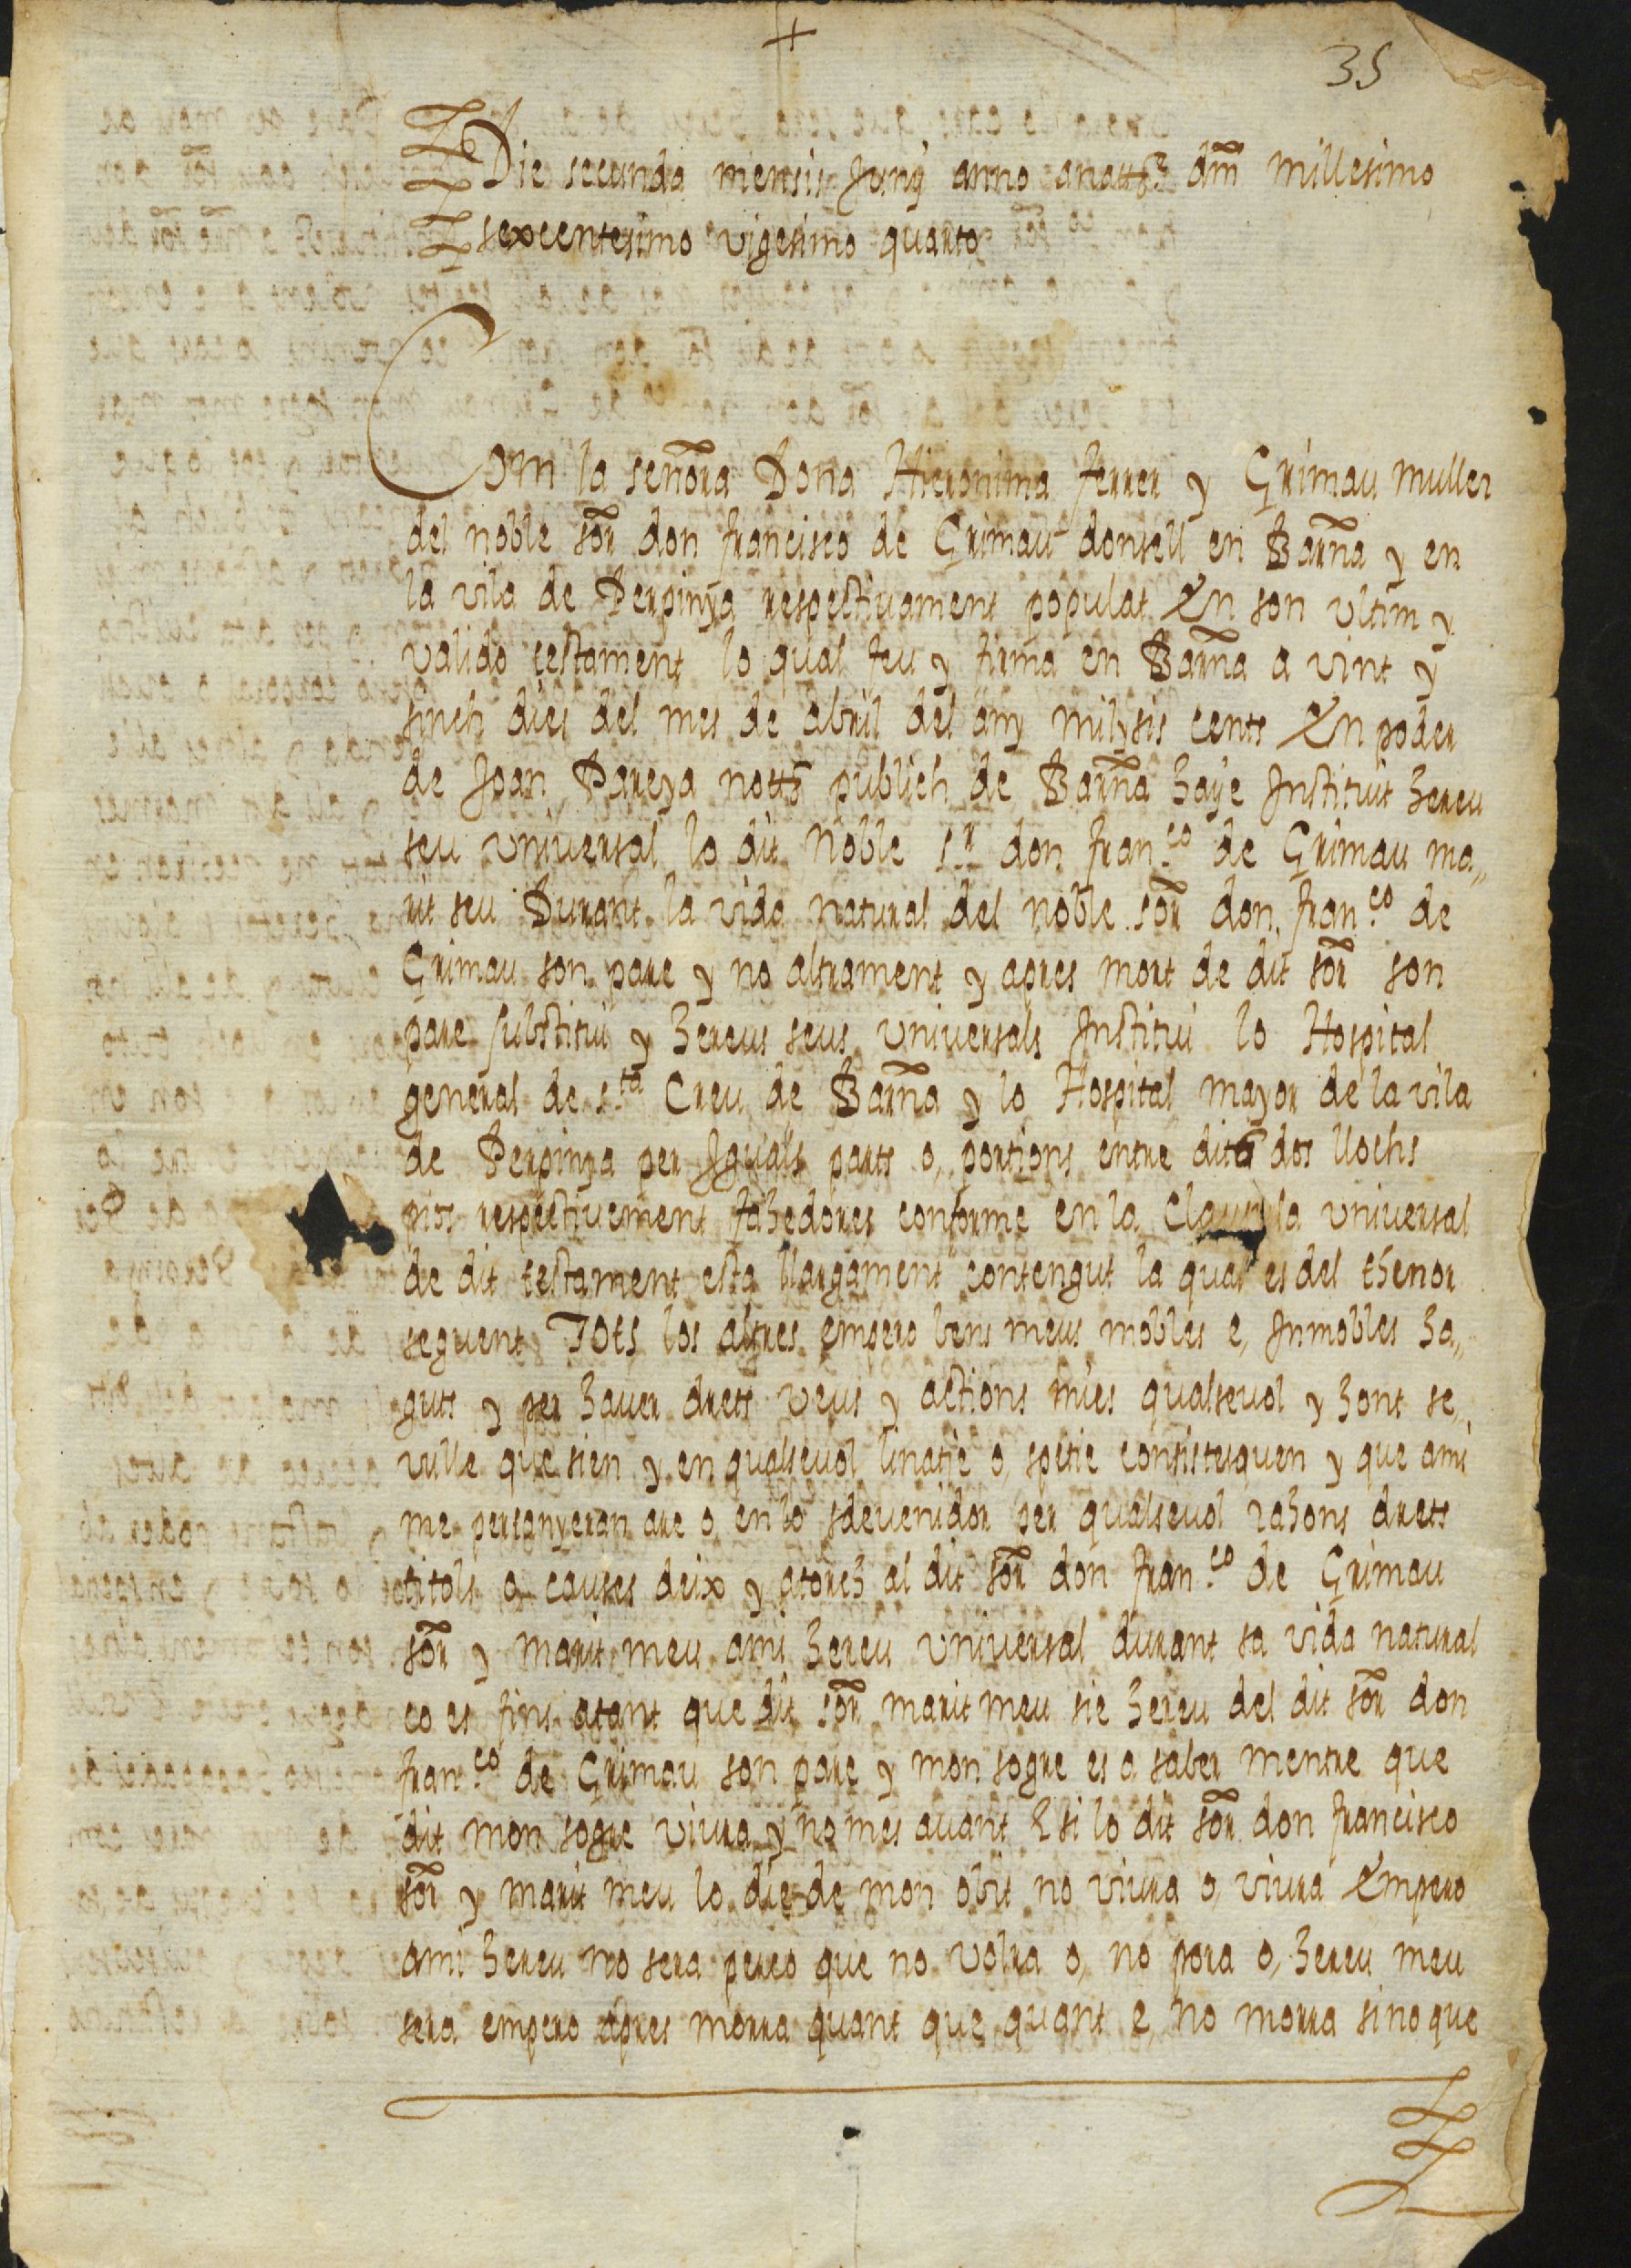 +
35
Die secunda mensis Juny anno anattē dm̄ millesimo
sexcentesimo vigesimo quarto
Com la señora Dona Hieronima ferrer y Grimau muller
del noble sōr don francisco de Grimau donsell en Barn̄a y en
la vila de Perpinya respectiuament populat En son vltim y
valido testament lo qual feu y firma en Barn̄a a vint y
sinch dies del mes de abril del any mil y sis cents En poder
de Joan Pareya nott̄ publich de Barn̄a haye Instituit hereu
seu vniuersal lo dit Noble Sr don fran.co de Grimau ma„
rit seu Durant la vida natural del noble sōr don fran.co de
Grimau son pare y no altrament y apres mort de dit sōr son
pare substitui y hereus seus vniuersals Institui lo Hospital
general de s.ta Creu de Barn̄a y lo Hospital mayor de la vila
de Perpinya per Iguals parts o, portions entre dits dos llochs
pios respectiuement fahedores conforme en la Clausula vniuersal
de dit testament esta llargament contengut la qual es del thenor
seguent TOts los altres empero bens meus mobles e, Inmobles ha„
guts y per hauer drets veus y actions mies qualseuol y hont se„
vulle que sien y en qualseuol linatje o, spetie consistesquen y que ami
me pertanyeran are o, en lo sdeuenidor per qualseuol rahons drets
titols o, causes deix y atorch al dit sōr don fran.co de Grimau
sōr y marit meu ami hereu vniuersal durant sa vida natural
co es fins atant que dit sōr marit meu sie hereu del dit sōr don
fran.co de Grimau son pare y mon sogre es a saber mentre que
dit mon sogre viura y no mes auant E si lo dit sōr don francisco
sōr y marit meu lo die de mon obit no viura o, viura Empero
ami hereu no sera perco que no volra o, no pora o, hereu meu
sera empero apres morra quant que quant e, no morra sino que